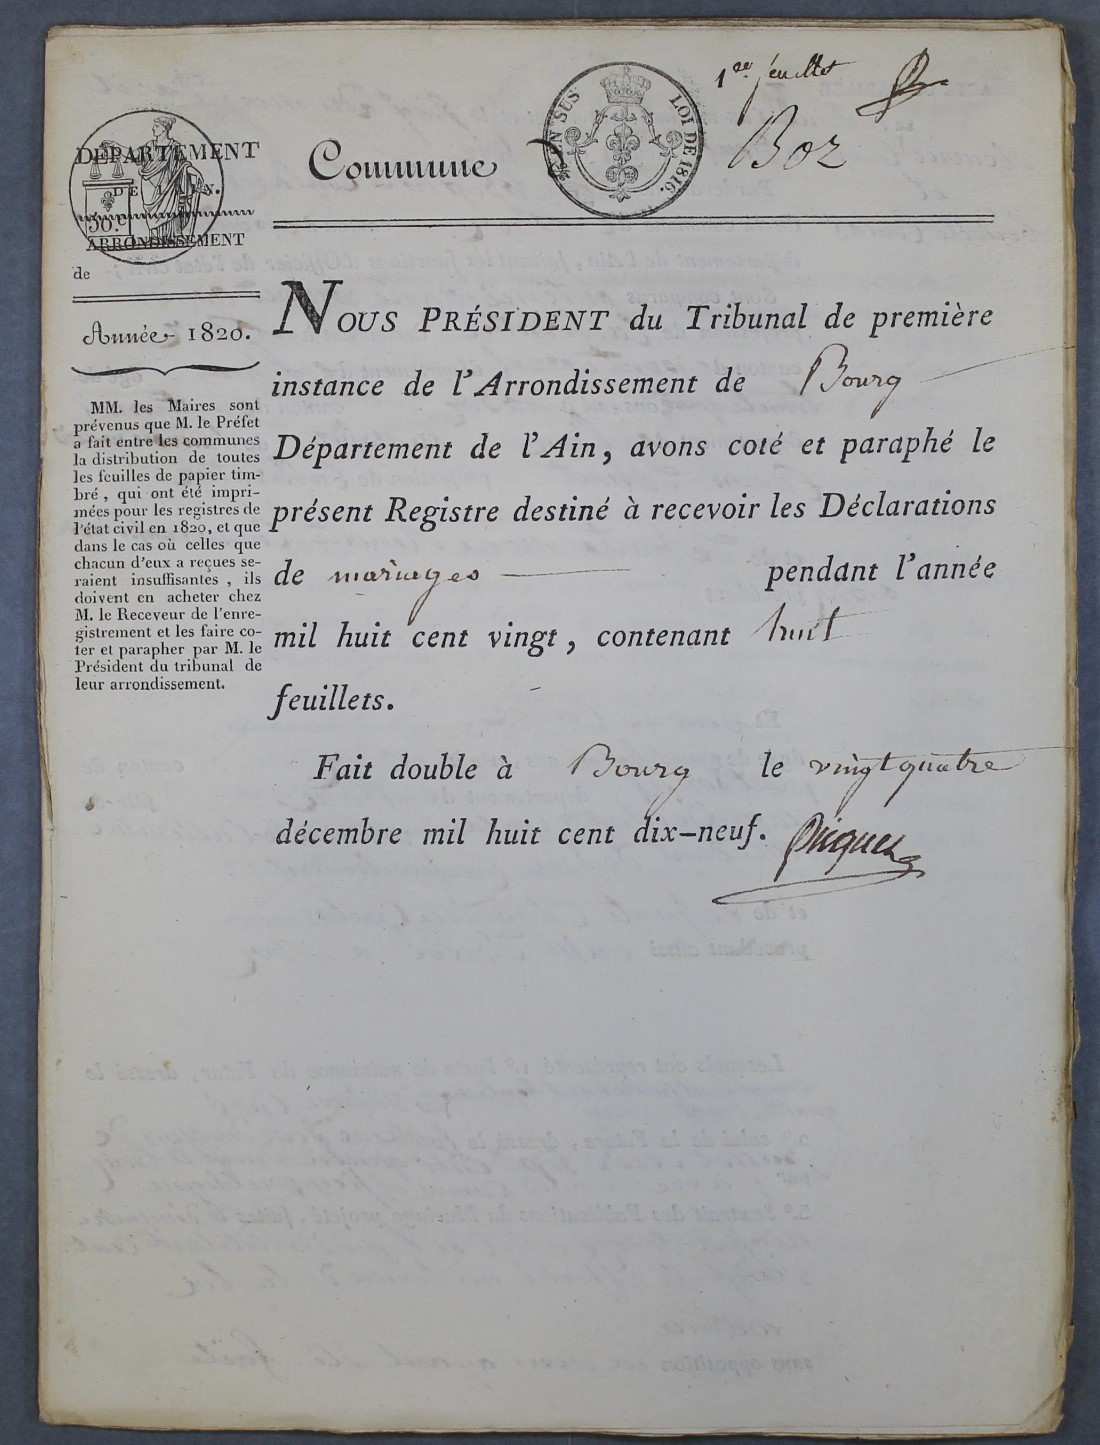 1er feuillet
EN SUS LOI DE 1816.
DÉPARTEMENT
DE L'AIN.
50.
ARRONDISSEMENT
de
Commune Boz
Année 1820.
MM. les Maires sont
prévenus que M. le Préfet
a fait entre les communes
la distribution de toutes
les feuilles de papier tim-
bré, qui ont été impri-
mées pour les registres de
l'état civil en 1820, et que
dans le cas où celles que
chacun d'eux a reçues se-
raient insuffisantes, ils
doivent en acheter chez
M. le Receveur de l'enre-
gistrement et les faire co-
ter et parapher par M. le
Président du tribunal de
leur arrondissement.
NOUS PRÉSIDENT du Tribunal de première
instance de l'Arrondissement de Bourg
Département de l'Ain, avons coté et paraphé le
présent Registre destiné à recevoir les Déclarations
de mariages pendant l'année
mil huit cent vingt, contenant huit
feuillets.
Fait double à Bourg le vingt quatre
décembre mil huit cent dix-neuf.